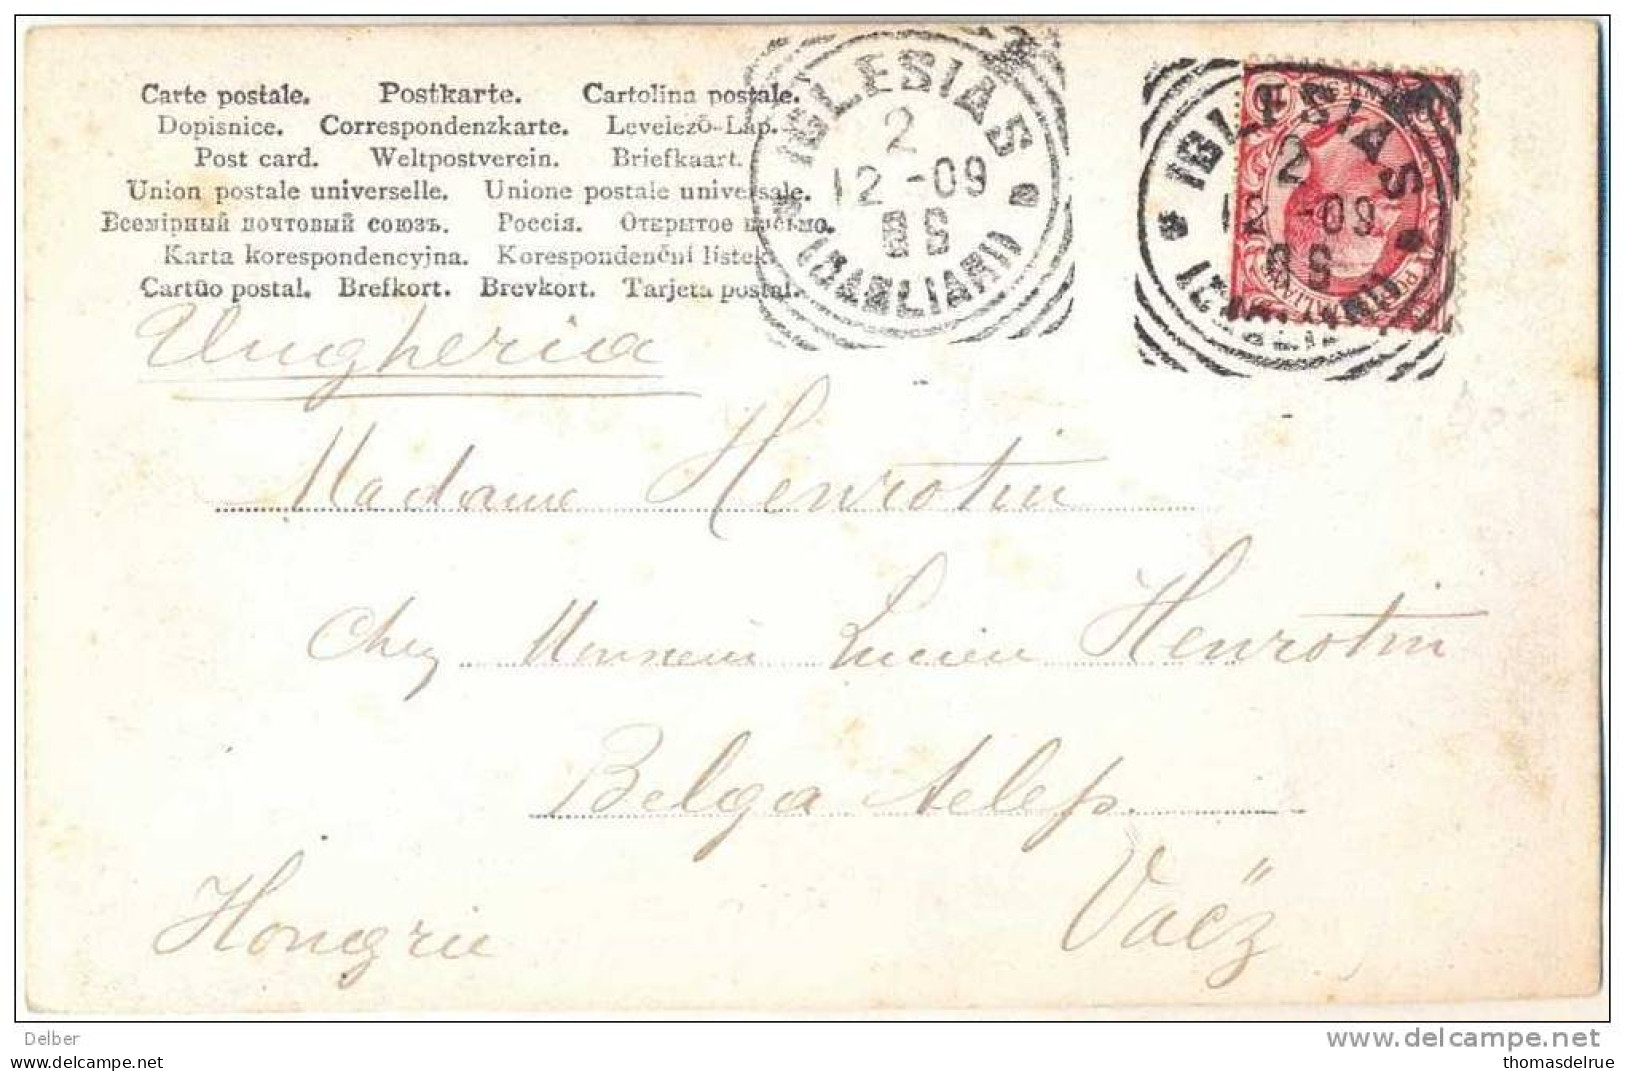 Carte postale. Postkarte. Cartolina postale.
Dopisnice. Correspondenzkarte. Levelező-Lap.
Post card. Weltpostverein. Briefkaart.
Union postale universelle. Unione postale universale.
Всемірный почтовый союзъ. Россія. Открытое письмо.
Karta korespondencyjna. Korespondenční lístek.
Cartũo postal. Brefkort. Brevkort. Tarjeta postal.
IGLESIAS
2
12-09
(CAGLIARI)
IGLESIAS
2
12-09
Ungheria
Madame Henrotin
Chez Monsieur Lucien Henrotin
Belga telep.
Vaëz
Hongrie
Delber
delcampe.net
thomasdelrue